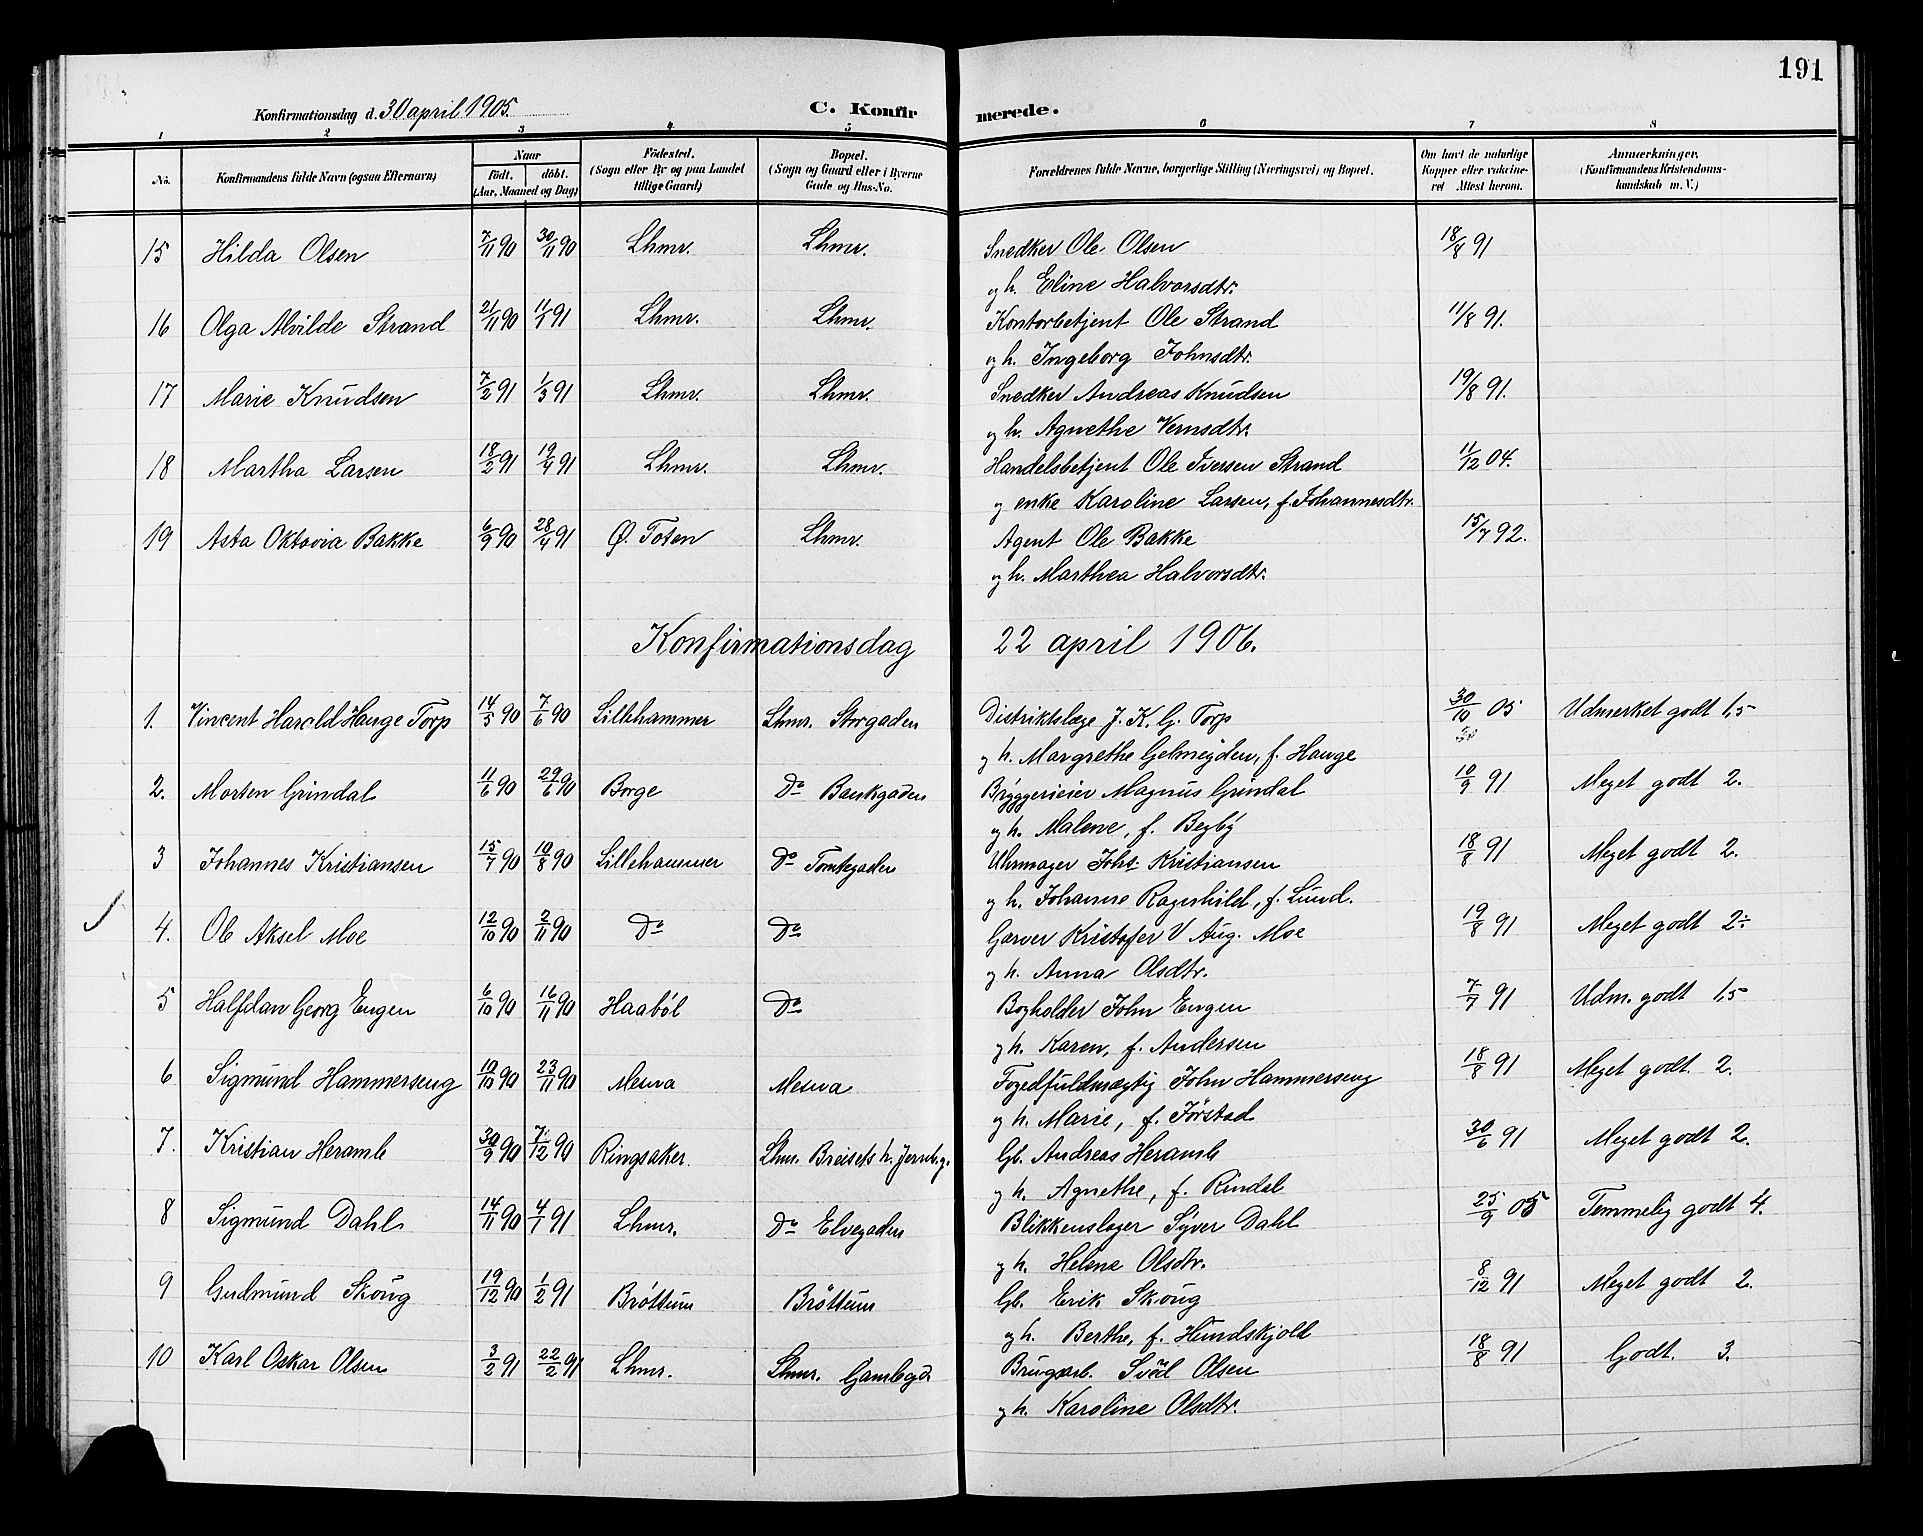 191
Konfirmationsdag d. 30 april 1905. C. Konfir merede.
1 2 3 4 5 6 7 8
No. Konfirmandens fulde Navn (ogsaa Efternavn) Naar födt. döbt. (Aar, Maaned og Dag) Födested. (Sogn eller By og paa Landet tillige Gaard) Bopæl. (Sogn og Gaard eller i Byerne Gade og Hus-No. Forældrenes fulde Navne, borgerlige Stilling (Næringsvei) og Bopæl. Om havt de naturlige Kopper eller vaksineret Attest herom. Anmærkninger. (Konfirmandens Kristendomskundskab m. V.)
15 Hilda Olsen 7/11 90 30/11 90 Lhmr. Lhmr. Snedker Ole Olsen 18/8 91
og h. Eline Halvorsdtr.
16 Olga Alvilde Strand 21/11 90 11/1 91 Lhmr. Lhmr. Kontorbetjent Ole Strand 11/8 91.
og h. Ingeborg Johnsdtr.
17 Marie Knudsen 7/2 91 1/3 91 Lhmr. Lhmr. Snedker Andreas Knudsen 19/8 91.
og h. Agnethe Vernsdtr.
18 Martha Larsen 18/2 91 19/4 91 Lhmr. Lhmr. Handelsbetjent Ole Iversen Strand 11/12 04.
og enke Karoline Larsen, f. Johannesdtr.
19 Asta Oktovia Bakke 6/9 90 28/4 91 Ø. Toten Lhmr. Agent Ole Bakke 15/7 92.
og h. Marthea Halvorsdtr.
Konfirmationsdag 22 april 1906.
1. Vincent Harold Hauge Torp 14/5 90 7/6 90 Lillehammer Lhmr. Storgaden Distriktslæge J. K. G. Torp 30/10 05 Udmerket godt 1,5
og h. Margrethe Gelmeyden, f. Hauge
2. Morten Grindal 11/6 90 29/6 90 Borge Do Bankgaden Bryggerieier Magnus Grindal 10/9 91 Meget godt 2.
og h. Malene, f. Begby
3 Johannes Kristiansen 15/7 90 10/8 90 Lillehammer Do Tomtegaden Uhrmager Johs. Kristiansen 18/8 91 Meget godt 2.
og h. Johanne Ragnhild, f. Lund.
4. Ole Aksel Moe 12/10 90 2/11 90 Do Do Garver Kristofer V Aug. Moe 19/8 91 Meget godt 2÷
og h. Anna Olsdtr.
5 Halfdan Georg Engen 6/10 90 16/11 90 Haaböl Do Bogholder John Engen 7/7 91 Udm. godt 1,5
og h. Karen, f. Andersen
6 Sigmund Hammerseng 10/10 90 23/11 90 Mesna Mesna Fogedfuldmægtig John Hammerseng 18/8 91 Meget godt 2.
og h. Marie, f. Jørstad
7. Kristian Heramb 30/9 90 7/12 90 Ringsaker. Lhmr. Breiseth h. Jernb.g. Gb. Andreas Heramb 30/6 91 Meget godt 2.
og h. Agnethe, f. Rindal
8 Sigmund Dahl 14/11 90 4/1 91 Lhmr. Do Elvegaden Blikkenslager Syver Dahl 25/9 05 Temmelig godt 4.
og h. Helene Olsdtr.
9 Gudmund Skoug 19/12 90 1/2 91 Bröttum Bröttum Gb. Erik Skoug 8/12 91 Meget godt 2.
og h. Berthe, f. Hundskjold
10 Karl Oskar Olsen 3/2 91 22/2 91 Lhmr. Lhmr. Gamlegd. Brugsarb. Olsen 18/8 91 Godt. 3.
og h. Karoline Olsdtr.